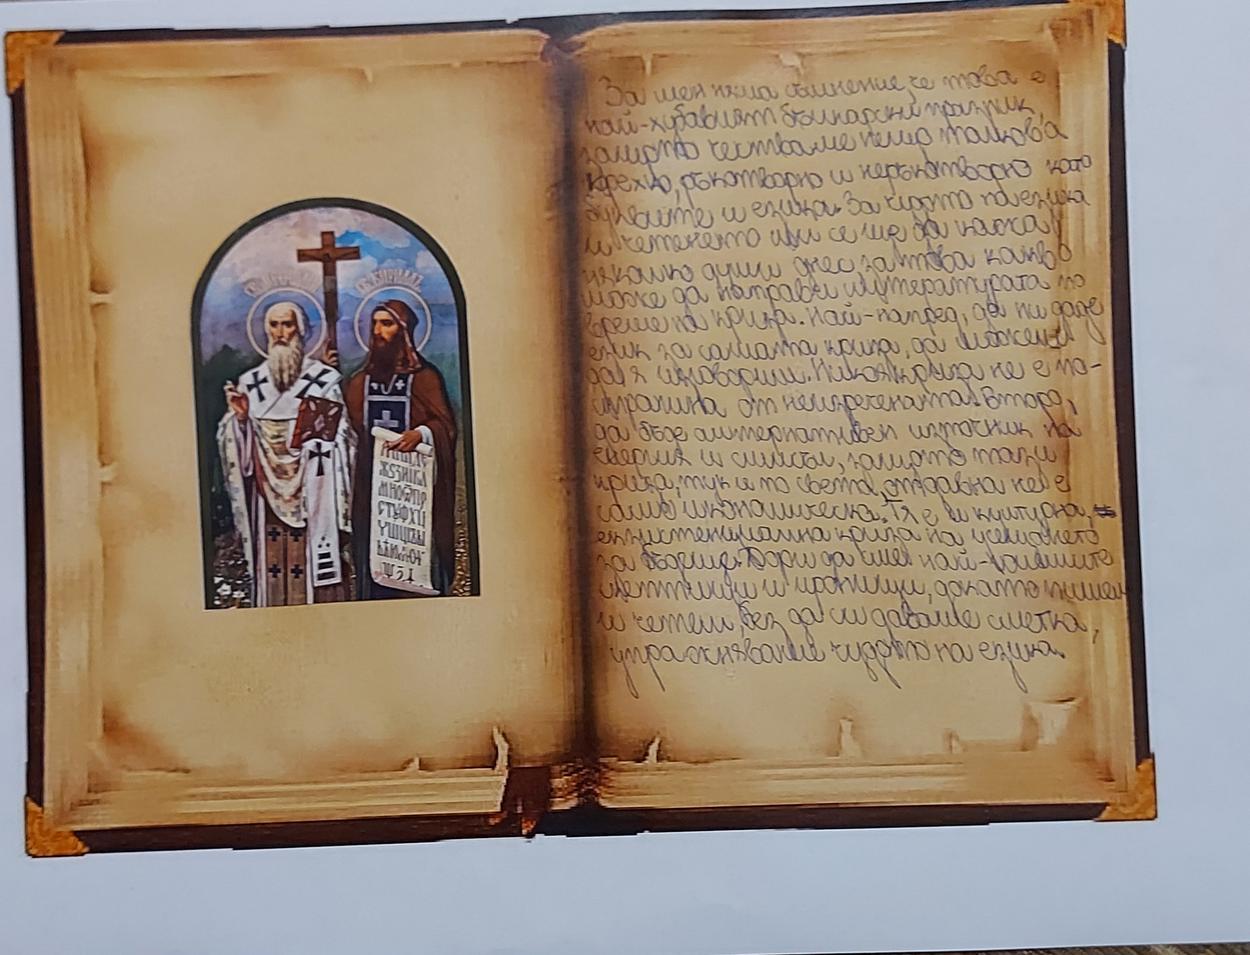 СВ. КИРИЛЪ
За мен няма съмнение, че това е
най-хубавият български празник,
защото честваме нещо толкова
крехко, ръкотворно и неръкотворно като
буквите и езика. За чудото на езика
и четенето ми се ще да кажа
няколко думи днес за това какво
може да направи литературата по
време на криза. Най-напред, да ни даде
език за самата криза, да можем
да я изговорим. Никоя криза не е по-
страшна от неизречената. Второ,
да бъде алтернативен източник на
енергия и смисъл, защото тази
криза, тук и по света, отдавна не е
само икономическа. Тя е и културна,
екзистенциална криза на усещането
за бъдеще. Дори да сме най-големите
скептици и ироници, докато пишем
и четем, без да си даваме сметка,
упражняваме чудото на езика.